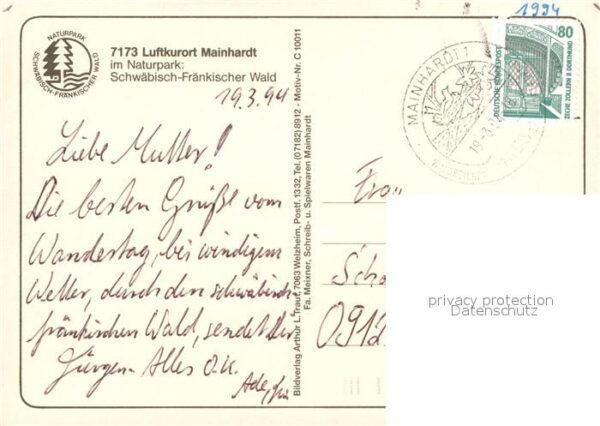 1994
NATURPARK
SCHWÄBISCH-FRÄNKISCHER WALD
7173 Luftkurort Mainhardt
im Naturpark:
Schwäbisch-Fränkischer Wald
19.3.94
Liebe Mutter!
Die besten Grüße vom
Wandertag, bei windigem
Wetter, durch den schwäbisch
fränkischen Wald, sendet Dir
Jürgen. Alles o.k.
Ade,
Bildverlag Arthur L. Traut, 7063 Welzheim, Postf. 1332, Tel. (07182) 8912 - Motiv-Nr. C 10011
Fa. Meixner, Schreib- u. Spielwaren Mainhardt
MAINHARDT 1
80
DEUTSCHE BUNDESPOST
ZECHE ZOLLERN II DORTMUND
Frau
Scho
0912
privacy protection
Datenschutz